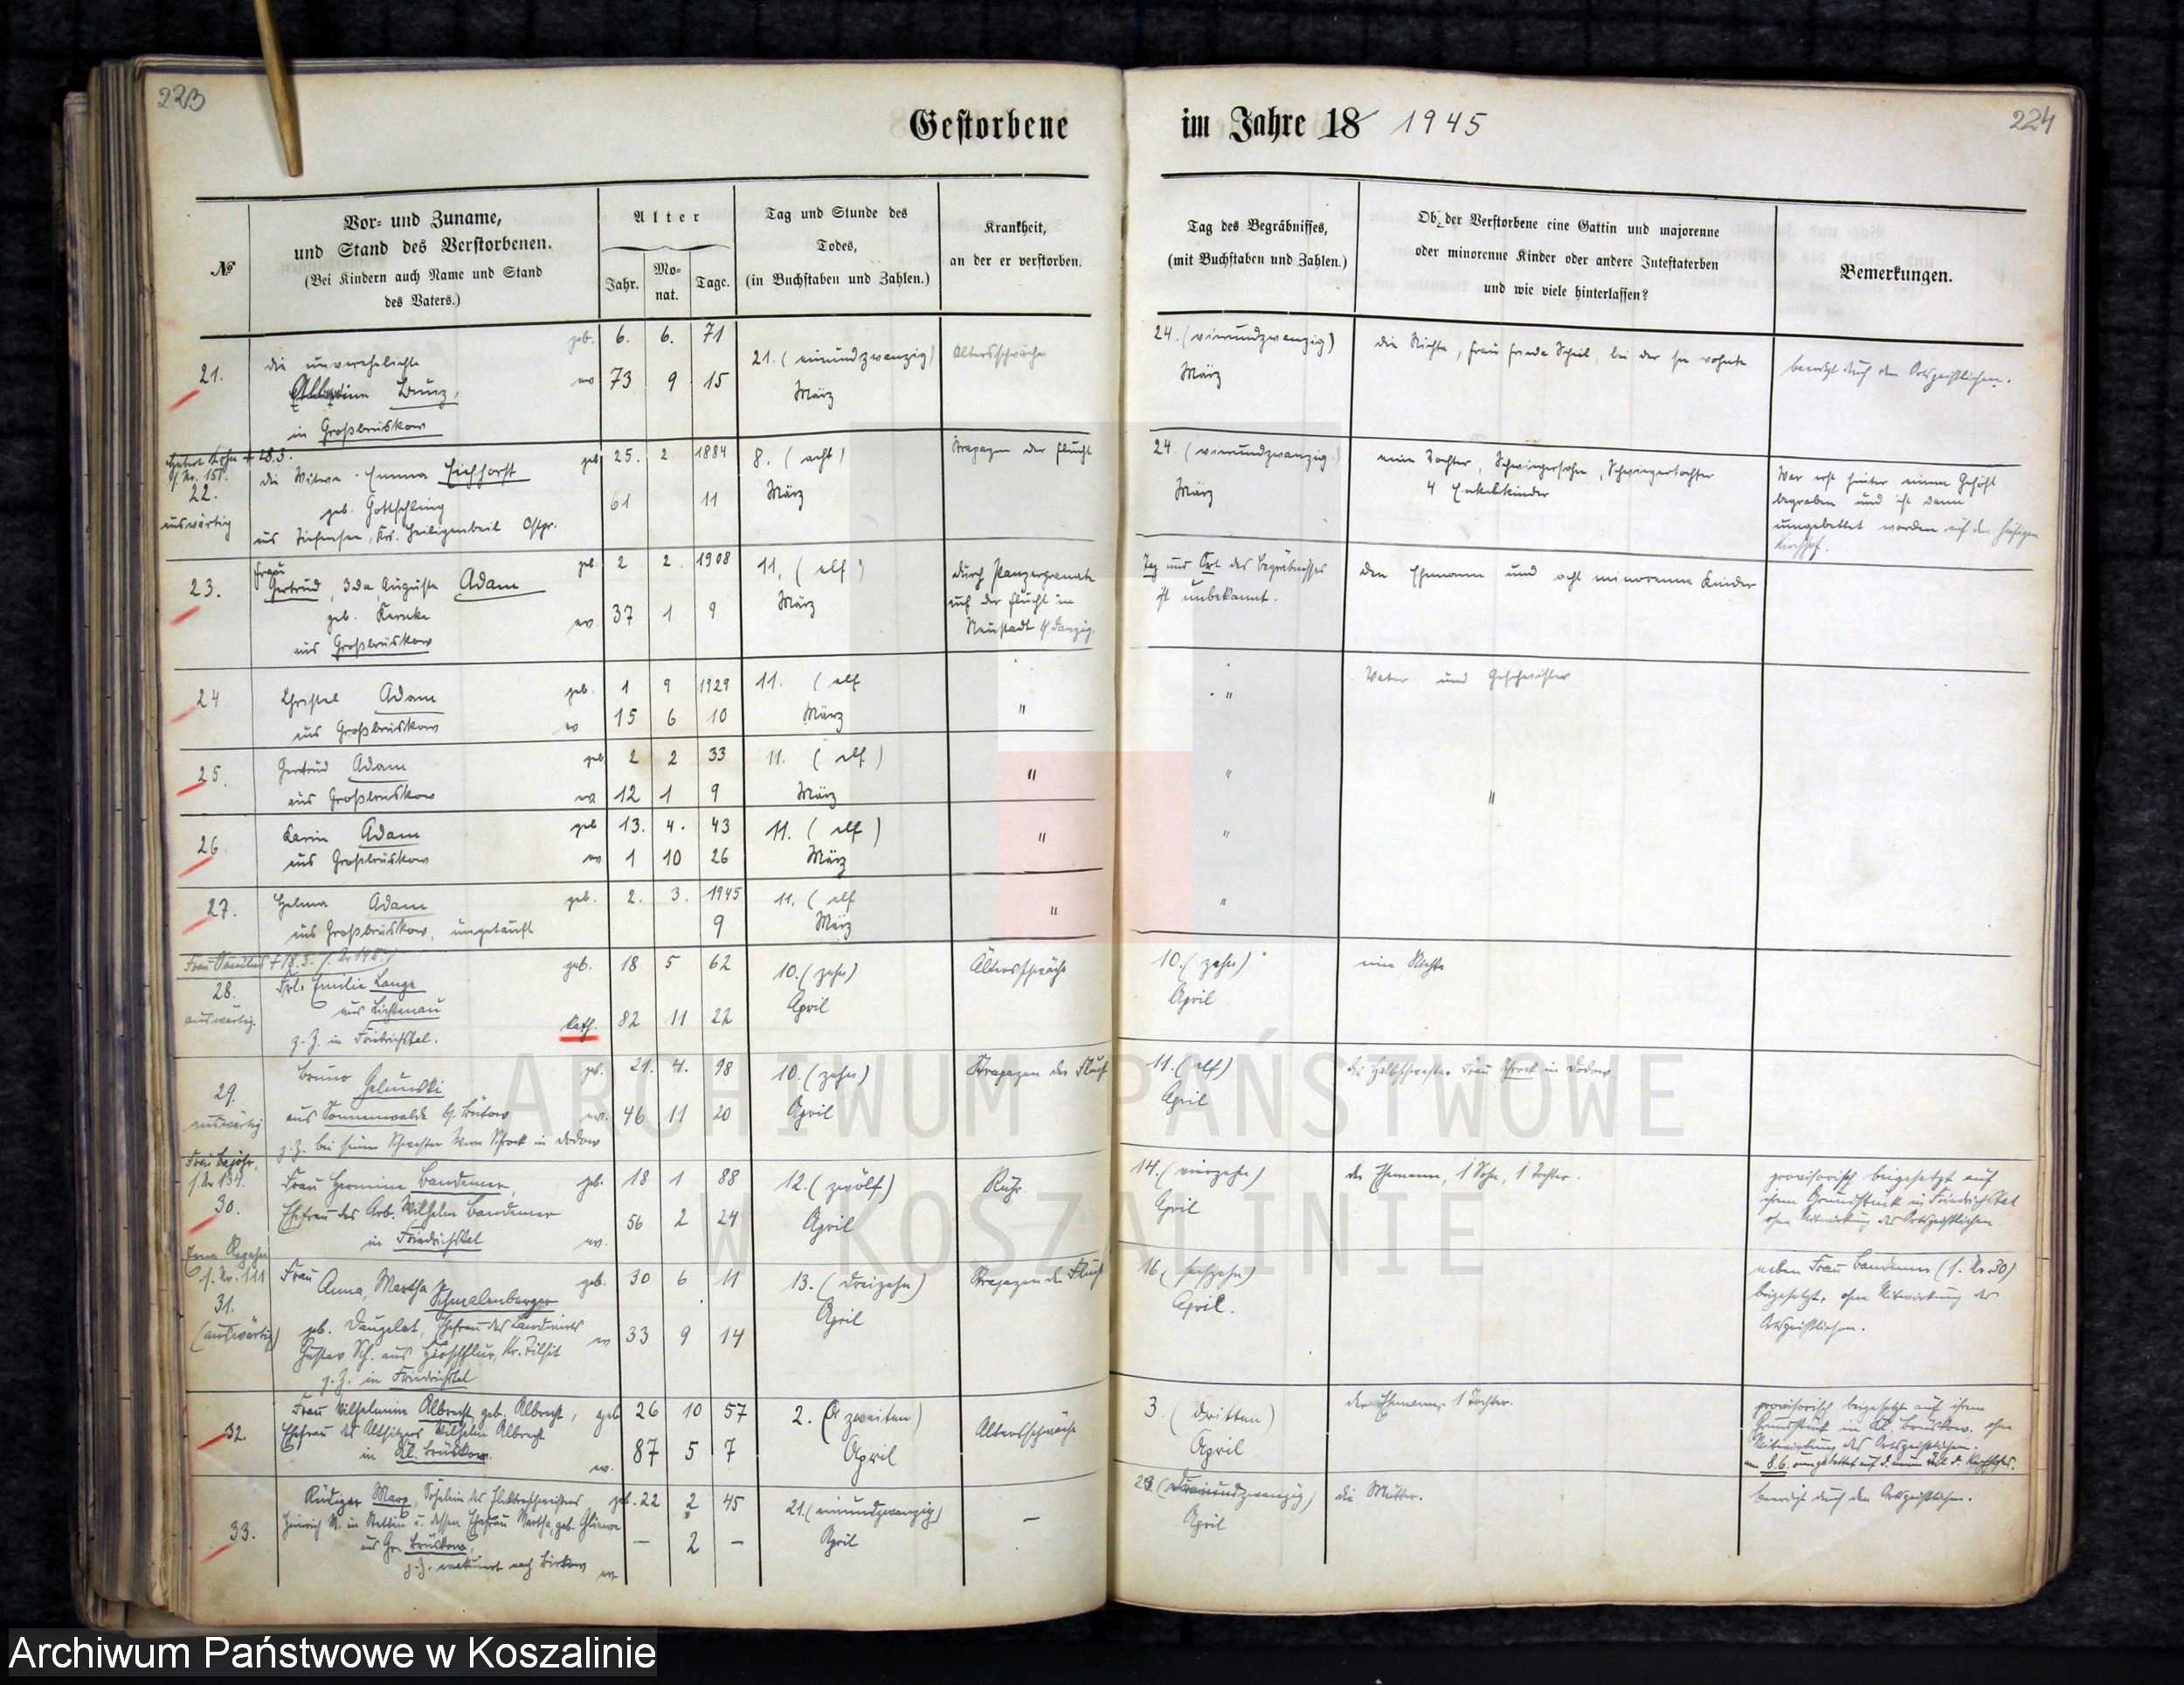 223
224
Gestorbene im Jahre 18 1945
№
Vor- und Zuname,
und Stand des Verstorbenen.
(Bei Kindern auch Name und Stand
des Vaters.)
Alter
Jahr.
Mo-
nat.
Tage.
Tag und Stunde des
Todes,
(in Buchstaben und Zahlen.)
Krankheit,
an der er verstorben.
Tag des Begräbnisses,
(mit Buchstaben und Zahlen.)
Ob der Verstorbene eine Gattin und majorenne
oder minorenne Kinder oder andere Intestaterben
und wie viele hinterlassen?
Bemerkungen.
21.
die unverehelichte
in Großbrüskow
geb. 6. 6. 71
ev 73 9 15
21. (einundzwanzig)
März
Altersschwäche
24. (vierundzwanzig)
März
die Nichte, Frau Frieda Scheil, bei der sie wohnte
beerdigt durch den Ortsgeistlichen.
22.
auswärtig
die Witwe Emma Eichhorst
geb. Gottschling
aus Tiefensee, Krs. Heiligenbeil Ostpr.
geb. 25. 2. 1884
61 11
8. (acht)
März
Strapazen der Flucht
24. (vierundzwanzig)
März
eine Tochter, Schwiegersohn, Schwiegertochter
4 Enkelkinder
War erst hinter einem Gehöft
begraben und ist dann
umgebettet worden auf den hiesigen
Kirchhof.
23.
Frau
Gertrud, Ida, Auguste Adam
geb.
aus Großbrüskow
geb. 2 2. 1908
ev. 37 1 9
11. (elf)
März
durch Panzergranate
auf der Flucht in
Neustadt b. Danzig.
Tag und Ort des Begräbnisses
ist unbekannt.
den Ehemann und acht minorenne Kinder
24
Christel Adam
aus Großbrüskow
geb. 1 9 1929
ev 15 6 10
11. (elf
März
"
"
Vater und Geschwister
25.
Gertrud Adam
aus Großbrüskow
geb 2 2 33
ev 12 1 9
11. (elf)
März
"
"
"
26
Karin Adam
aus Großbrüskow
geb 13. 4. 43
ev 1 10 26
11. (elf)
März
"
"
27.
Helma Adam
aus Großbrüskow, ungetauft
geb. 2. 3. 1945
9
11. (elf
März
"
"
28.
auswärtig.
Frl. Emilie Lange
aus Lichtenau
z. Z. in Friedrichstal.
geb. 18 5 62
kath. 82 11 22
10. (zehn)
April
Altersschwäche
10. (zehn)
April
eine Nichte
29.
auswärtig
Bruno
aus Sonnenwalde b. Bütow
z. Z. bei seiner Schwester Schrock in Dodow
geb. 21. 4. 98
ev. 46 11 20
10. (zehn)
April
Strapazen der Flucht
11. (elf)
April
die Halbschwester Frau Schrock in Dodow
30.
Frau Hermine Bandemer,
Ehefrau des Arb. Wilhelm Bandemer
in Friedrichstal
geb. 18 1 88
ev. 56 2 24
12. (zwölf)
April
Ruhr
14. (vierzehn)
April
der Ehemann, 1 Sohn, 1 Tochter.
provisorisch beigesetzt auf
ihrem Grundstück in Friedrichstal
ohne Mitwirkung des Ortsgeistlichen.
s. Nr. 111
31.
(auswärtig)
Frau
Anna, Martha Schmalenberger
geb. Daugelat, Ehefrau des Landwirts
Gustav Sch. aus Hirschflur, Kr. Tilsit
z. Z. in Friedrichstal
geb. 30 6 11
ev 33 9 14
13. (dreizehn)
April
Strapazen der Flucht
16. (sechzehn)
April.
neben Frau Bandemer (s. Nr. 30)
beigesetzt, ohne Mitwirkung des
Ortsgeistlichen.
32.
Frau Wilhelmine Albrecht, geb. Albrecht,
Ehefrau des Altsitzers Wilhelm Albrecht
in Kl. Brüskow.
geb 26 10 57
ev. 87 5 7
2. (zweiten)
April
Altersschwäche
3. (dritten)
April
der Ehemann, 1 Tochter.
provisorisch beigesetzt auf ihrem
Grundstück in Kl. Brüskow. ohne
Mitwirkung des Ortsgeistlichen.
am 8.6. umgebettet auf d. neuen Teil d. Kirchhofes.
33.
Rüdiger Marx, Söhnlein des Elektroschweißers
Heinrich M. in Stettin u. dessen Ehefrau Martha, geb.
aus Gr. Brüskow,
z. Z. evakuiert nach Birkow
geb. 22 2 45
ev — 2 —
21. (einundzwanzig)
April
—
April
die Mutter.
beerdigt durch den Ortsgeistlichen.
ARCHIWUM PAŃSTWOWE
W KOSZALINIE
Archiwum Państwowe w Koszalinie